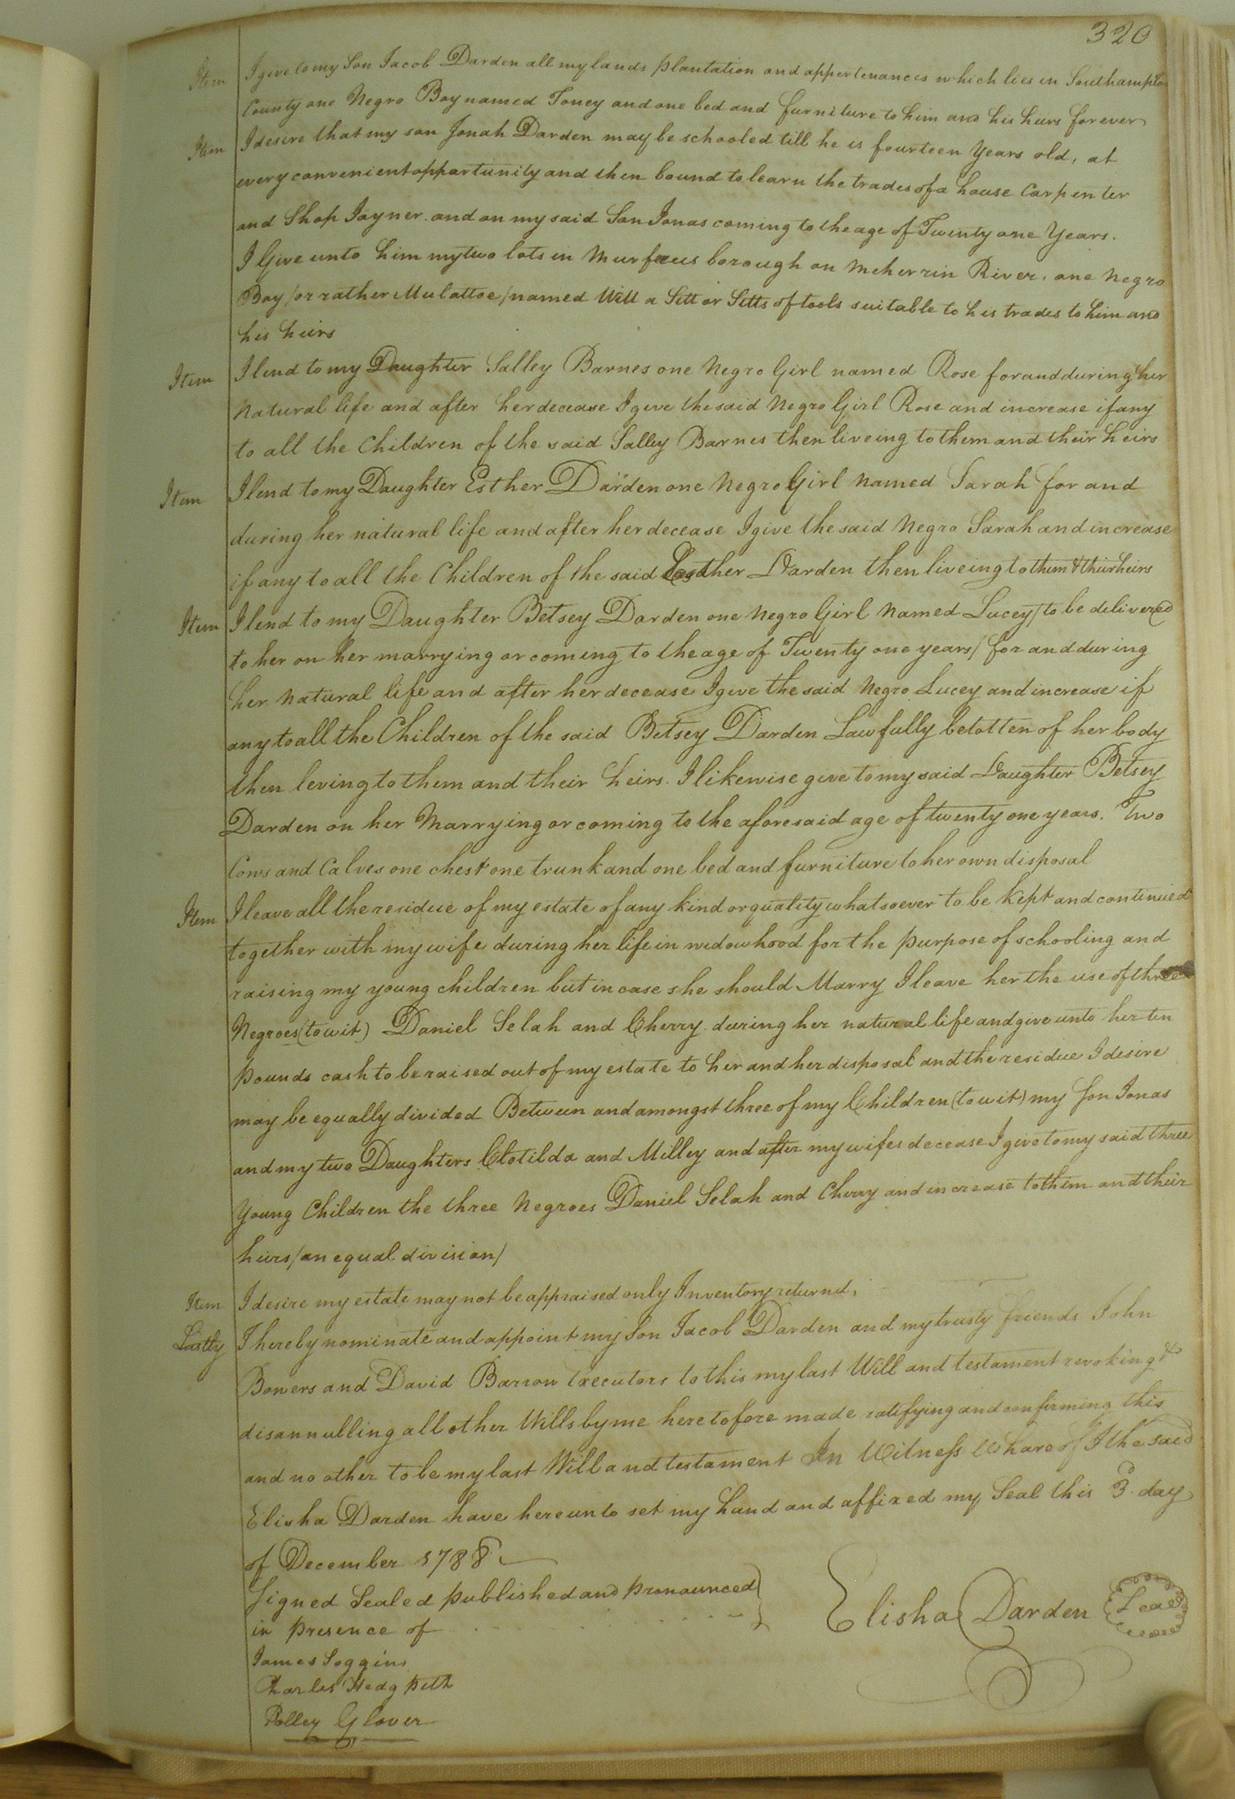 320
Item I give to my Son Jacob Darden all my lands plantation and appertenances which lies in Southampton
County one Negro Boy named Toney and one bed and furniture to him and his heirs forever
Item I desire that my son Jonah Darden may be schooled till he is fourteen Years old, at
every convenient opportunity and then bound to learn the trades of a house Carpenter
and Shop Joyner. and on my said Son Jonas coming to the age of Twenty one Years.
I Give unto him my two lots in Murfrees borough on Meherrin River. one Negro
Boy /or rather Mulattoe/ named Will a Sett or Setts of tools suitable to his trades to him and
his heirs
Item I lend to my Daughter Salley Barnes one Negro Girl named Rose for and during her
Natural life and after her decease I give the said Negro Girl Rose and increase if any
to all the Children of the said Salley Barnes then liveing to them and their heirs
Item I lend to my Daughter Esther Darden one Negro Girl Named Sarah for and
during her natural life and after her decease I give the said Negro Sarah and increase
if any to all the Children of the said Easther Darden then liveing to them & their heirs
Item I lend to my Daughter Betsey Darden one Negro Girl Named Lucey /to be delivered
to her on her marrying or coming to the age of Twenty one years/ for and during
her Natural life and after her decease I give the said Negro Lucey and increase if
any to all the Children of the said Betsey Darden Lawfully betotten of her body
then leving to them and their heirs. I likewise give to my said Daughter Betsey
Darden on her Marrying or coming to the aforesaid age of twenty one years. Two
Cows and Calves one chest one trunk and one bed and furniture to her own disposal
Item I leave all the residue of my estate of any kind or quality whatsoever to be kept and continued
together with my wife during her life in widowhood for the purpose of schooling and
raising my young children but in case she should Marry I leave her the use of three
Negroes (to wit) Daniel Selah and Cherry during her natural life and give unto her ten
pounds cash to be raised out of my estate to her and her disposal and the residue I desire
may be equally divided Between and amongst three of my Children (to wit) my Son Jonas
and my two Daughters Clotilda and Milley and after my wifes decease I give to my said three
Young Children the three Negroes Daniel Selah and Cherry and increase to them and their
heirs /an equal division/
Item I desire my estate may not be appraised only Inventory returnd.
Lastly I hereby nominate and appoint my Son Jacob Darden and my trusty friends John
Bowers and David Barrow Executors to this my last Will and testament revoking &
disannulling all other Wills by me heretofore made ratifying and confirming this
and no other to be my last Will and testament In Witness Whareof I the said
Elisha Darden have hereunto set my hand and affixed my Seal this 3 day
of December 1788
Signed Sealed published and pronounced
in presence of
Elisha Darden Seal
James Soggins
Charles Hedgpeth
Polley Glover